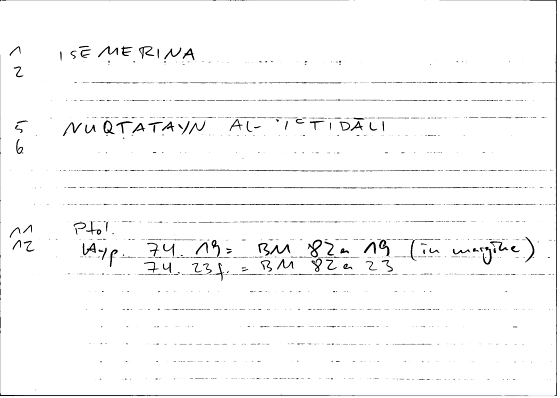 1 ISĒMERINA
2
5 NUQTATAYN AL-ʾIʿTIDĀLI
6
11 Ptol.
12 Hyp. 74. 19 = BM 82a 19 (in margine)
74. 23f. = BM 82a 23